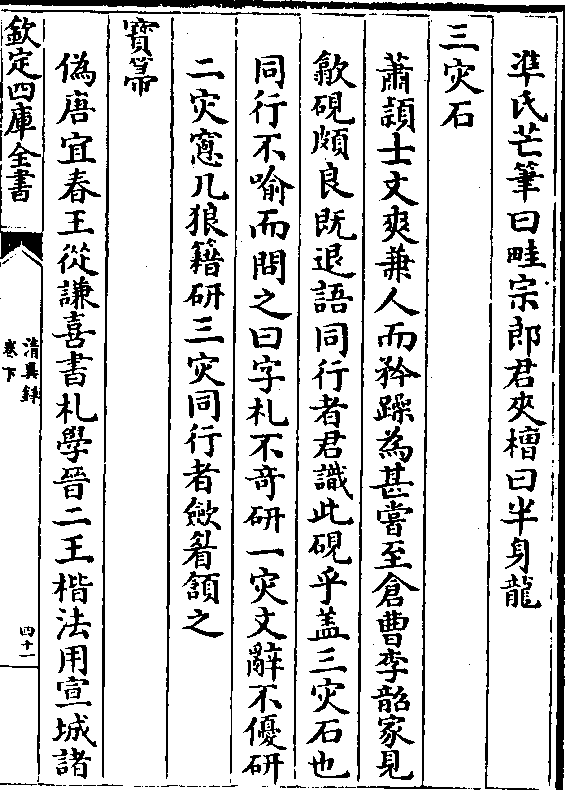 準氏芒筆曰畦宗郎君夾槽曰半身龍
三災石
蕭頴士文爽兼人而矜躁為甚嘗至倉曹李韶家見
歙硯頗良既退語同行者君識此硯乎盖三灾石也
同行不喻而問之曰字札不竒研一灾文辭不優研
二灾窻几狼籍研三灾同行者歛眉頷之
寳箒
偽唐宜春王從謙喜書札學晉二王楷法用宣城諸
欽定四庫全書
清異録
卷下
四十一